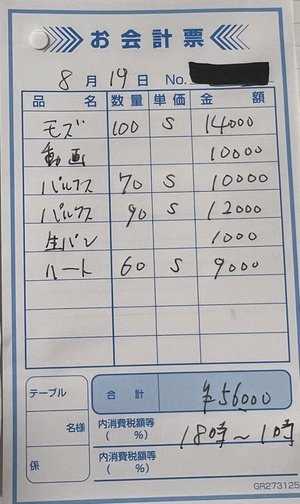 お会計票
8月19日 No.
品名 数量 単価 金額
モズ 100 S 14000
動画 10000
パルプス 70 S 10000
パルプス 90 S 12000
生パン 1000
ハート 60 S 9000
テーブル 合計 ¥56000
名様 内消費税額等 ( %) 18時～1時
係 内消費税額等 ( %)
GR273125